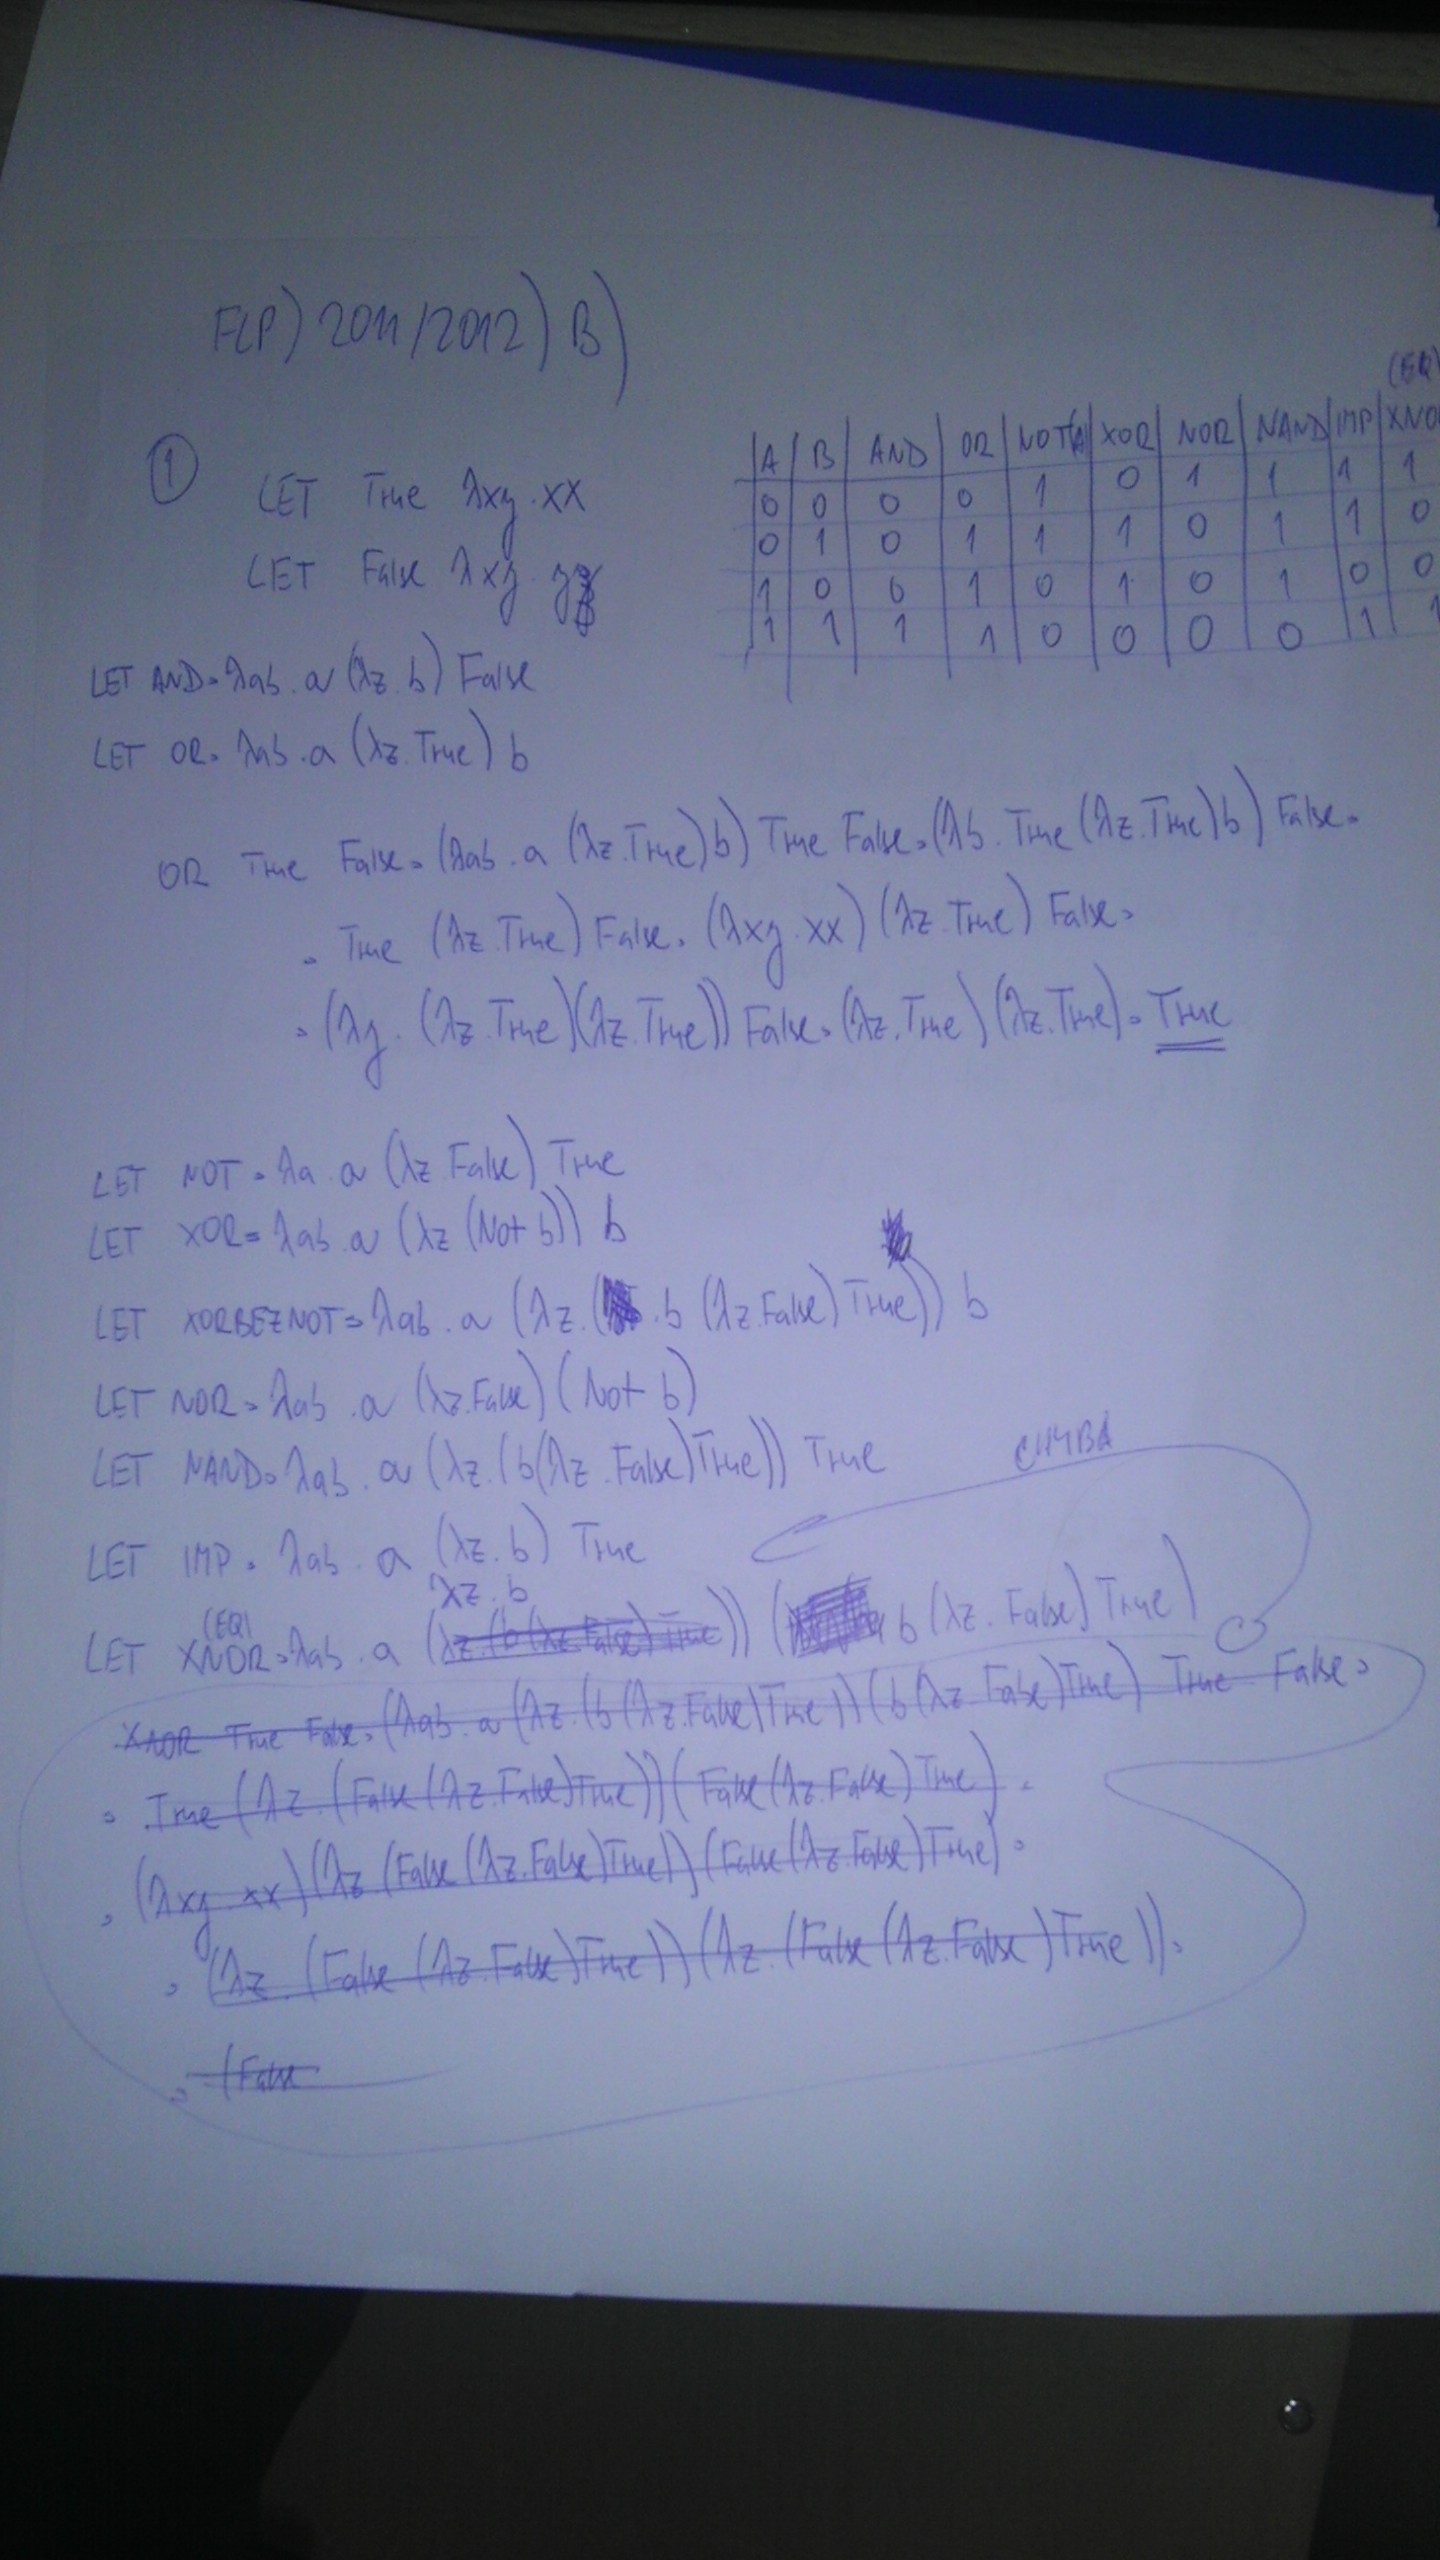 FLP) 2011/2012) B)
① LET True λxy.xx
LET False λxy.y
A | B | AND | OR | NOT(A) | XOR | NOR | NAND | IMP | (EQ) XNO
0 | 0 | 0 | 0 | 1 | 0 | 1 | 1 | 1 | 1
0 | 1 | 0 | 1 | 1 | 1 | 0 | 1 | 1 | 0
1 | 0 | 0 | 1 | 0 | 1 | 0 | 1 | 0 | 0
1 | 1 | 1 | 1 | 0 | 0 | 0 | 0 | 1 | 1
LET AND = λab.a (λz.b) False
LET OR = λab.a (λz.True) b
OR True False = (λab.a (λz.True) b) True False = (λb.True (λz.True) b) False =
= True (λz.True) False = (λxy.xx) (λz.True) False =
= (λy.(λz.True)(λz.True)) False = (λz.True)(λz.True) = True
LET NOT = λa.a (λz.False) True
LET XOR = λab.a (λz (Not b)) b
LET XORBEZNOT = λab.a (λz.( .b (λz.False) True)) b
LET NOR = λab.a (λz.False) (Not b)
LET NAND = λab.a (λz.(b(λz.False)True)) True
CHYBA
LET IMP = λab.a (λz.b) True
λz.b
(EQ)
LET XNOR = λab.a (λz.(b(λz.False)True)) ( b (λz.False) True)
XNOR True False = (λab.a (λz.(b(λz.False)True))(b(λz.False)True) True False =
= True (λz.(False(λz.False)True))(False(λz.False)True) =
= (λxy.xx)(λz.(False(λz.False)True))(False(λz.False)True) =
= (λz.(False(λz.False)True))(λz.(False(λz.False)True)) =
= (False